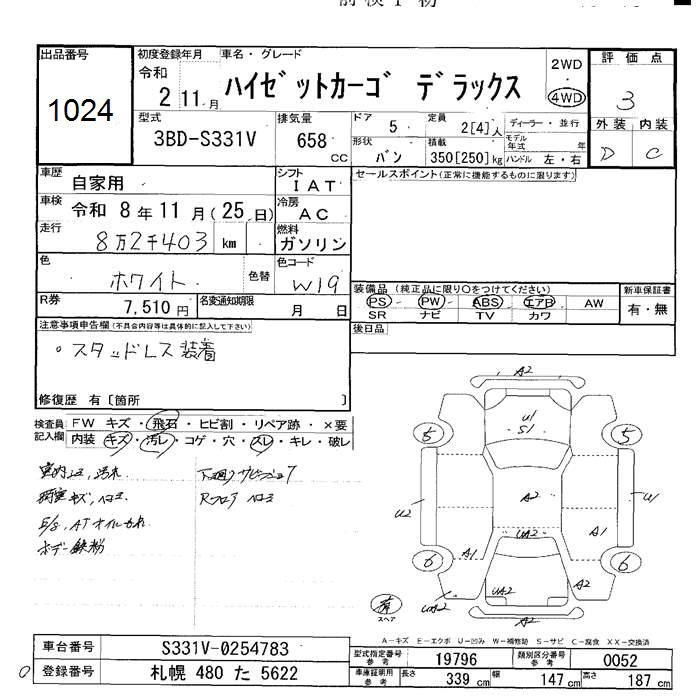 出品番号
1024
初度登録年月 車名・グレード
令和 2 11月 ハイゼットカーゴ デラックス
2WD
・
4WD
評価点
3
外装 内装
D C
型式 排気量 ドア 5 定員 2[4]人 ディーラー・並行
3BD-S331V 658 cc
形状 バン 積載 350[250]kg
モデル年式 年
ハンドル 左・右
車歴 自家用 シフト IAT
セールスポイント(正常に機能するものに限ります)
車検 令和 8年11月(25日) 冷房 AC
走行 8万2千403 km 燃料 ガソリン
色 ホワイト 色替 色コード W19
装備品(純正品に限り○をつけてください) 新車保証書
PS PW ABS エアB AW 有・無
SR ナビ TV カワ
R券 7,510円 名変通知期限 月 日
後日品
注意事項申告欄(不具合内容等は具体的に記入して下さい)
・スタッドレス装着
修復歴 有[箇所 ]
検査員記入欄 FW キズ・飛石・ヒビ割・リペア跡・×要
内装 キズ・汚レ・コゲ・穴・スレ・キレ・破レ
下廻りサビ
Rフロア ヘコミ
ボデー鉄粉
A2
U1
S1
5 5
A2
U2 W
A1
UA2
A1
6 6
A2
UA2
UA2
A2
有
スペア
A-キズ E-エクボ U-凹み W-補修跡 S-サビ C-腐食 XX-交換済
車台番号 S331V-0254783
型式指定番号 参考 19796 類別区分番号 参考 0052
登録番号 札幌 480 た 5622
車庫証明用 参考 長さ 339cm 幅 147cm 高さ 187cm